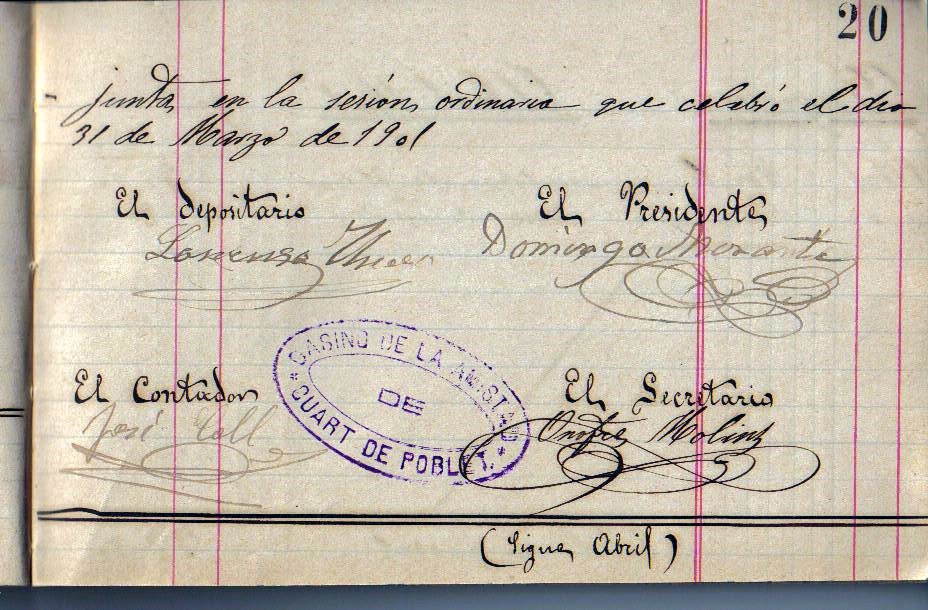 20
junta, en la sesión, ordinaria que celebró el dia
31 de Marzo de 1901
El depositario
El Presidente
Lorenso
Domingo
CASINO DE LA AMISTAD
DE
CUART DE POBLET.
El Contador
El Secretario
José Coll
Onofre Molins
(Sigue Abril)